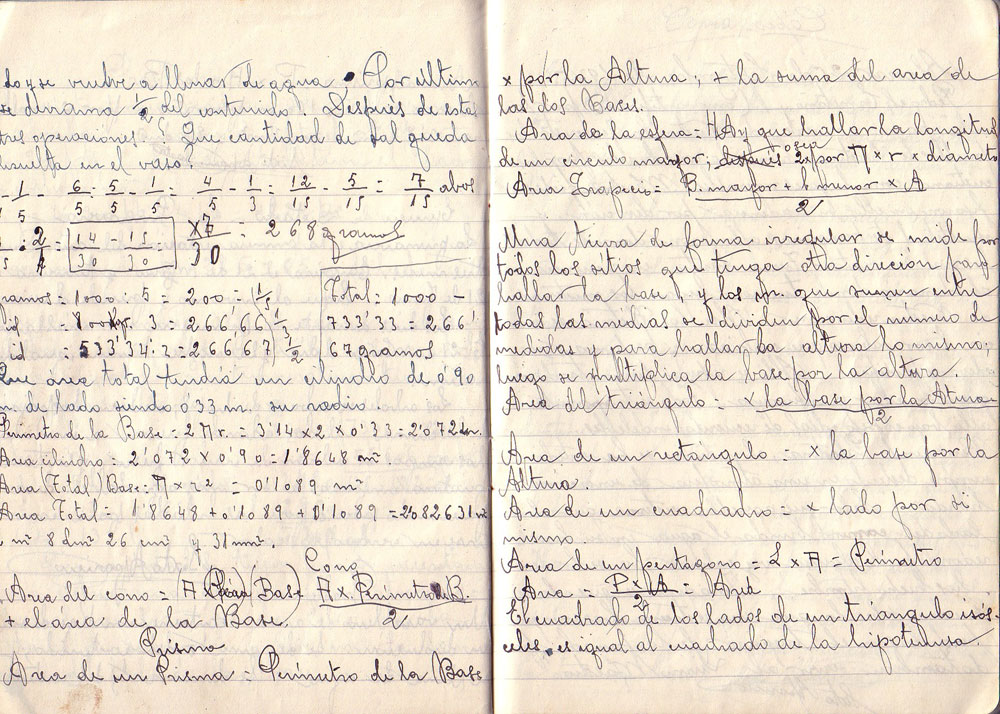 do y se vuelve a llenar de agua. Por último
se derrama 1/2 del contenido. Después de estas
tres operaciones ¿ Que cantidad de sal queda
disuelta en el vaso?
- 1/5 - 6/5 : 5/5 - 1/5 = 4/5 - 1/3 = 12/15 - 5/15 = 7/15 abos
: 2/1 = 14/30 - 15/30 = x7/30 = 268 gramos
gramos = 1000 : 5 = 200 = 1/5 Total = 1000 -
id = 800 gr. 3 = 266'66 1/3 733'33 = 266'
id = 533'34 : 2 = 266'67 1/2 67 gramos
Que área total tendrá un cilindro de 0'90
m. de lado siendo 0'33 m. su radio
Perímetro de la Base = 2 π r. = 3'14 x 2 x 0'33 = 2'072 m.
Area cilindro = 2'072 x 0'90 = 1'8648 m².
Area (Total) Base = π x r² = 0'1089 m²
Area Total = 1'8648 + 0'1089 + 0'1089 = 2'082631 m²
2 m² 8 dm² 26 cm² y 31 mm².
Cono
Area del cono = (A x (Base) A x Perímetro de B. / 2
+ el área de la Base.
Prisma
Area de un Prisma = Perímetro de la Base
x por la Altura; + la suma del area de
las dos Bases.
Area de la esfera = 4A y que hallar la longitud
de un circulo mayor; después osea 2 x por π x r x diámetro
Area Trapecio = B. mayor + b menor x A / 2
Una tierra de forma irregular se mide por
todos los sitios que tenga otra direción para
hallar la base, y los m. que sumen entre
todas las medias se dividen por el número de
medidas y para hallar la altura lo mismo;
luego se multiplica la base por la altura.
Area del triángulo = x la base por la Altura / 2
Area de un rectángulo = x la base por la
Altura.
Area de un cuadrado = x lado por si
mismo.
Area de un pentagono = L x A = Perímetro
Area = P x A / 2 = Area
El cuadrado de los lados de un triángulo isós-
celes, es igual al cuadrado de la hipotenusa.